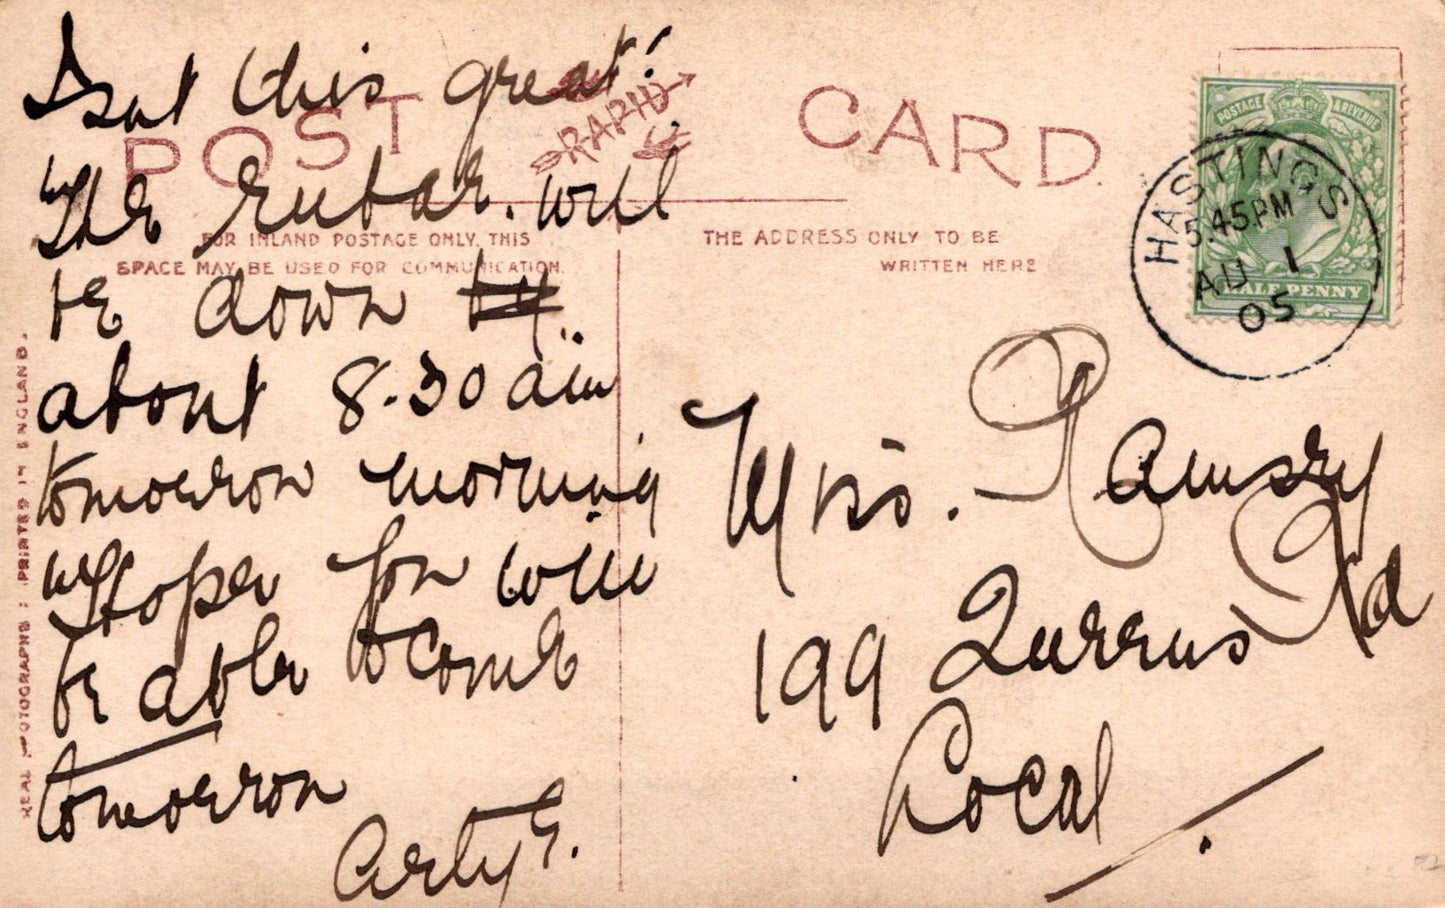 POST CARD
RAPHO
FOR INLAND POSTAGE ONLY, THIS
SPACE MAY BE USED FOR COMMUNICATION.
THE ADDRESS ONLY TO BE
WRITTEN HERE
REAL PHOTOGRAPHS : PRINTED IN ENGLAND.
POSTAGE & REVENUE
HALF PENNY
HASTINGS
5.45PM
AU 1
05
this great!
The will
be down
about 8.30 am
tomorrow morning
hope you will
be able to come
tomorrow
Arty G.
Miss. Ramsey
199 Queens Rd
Local